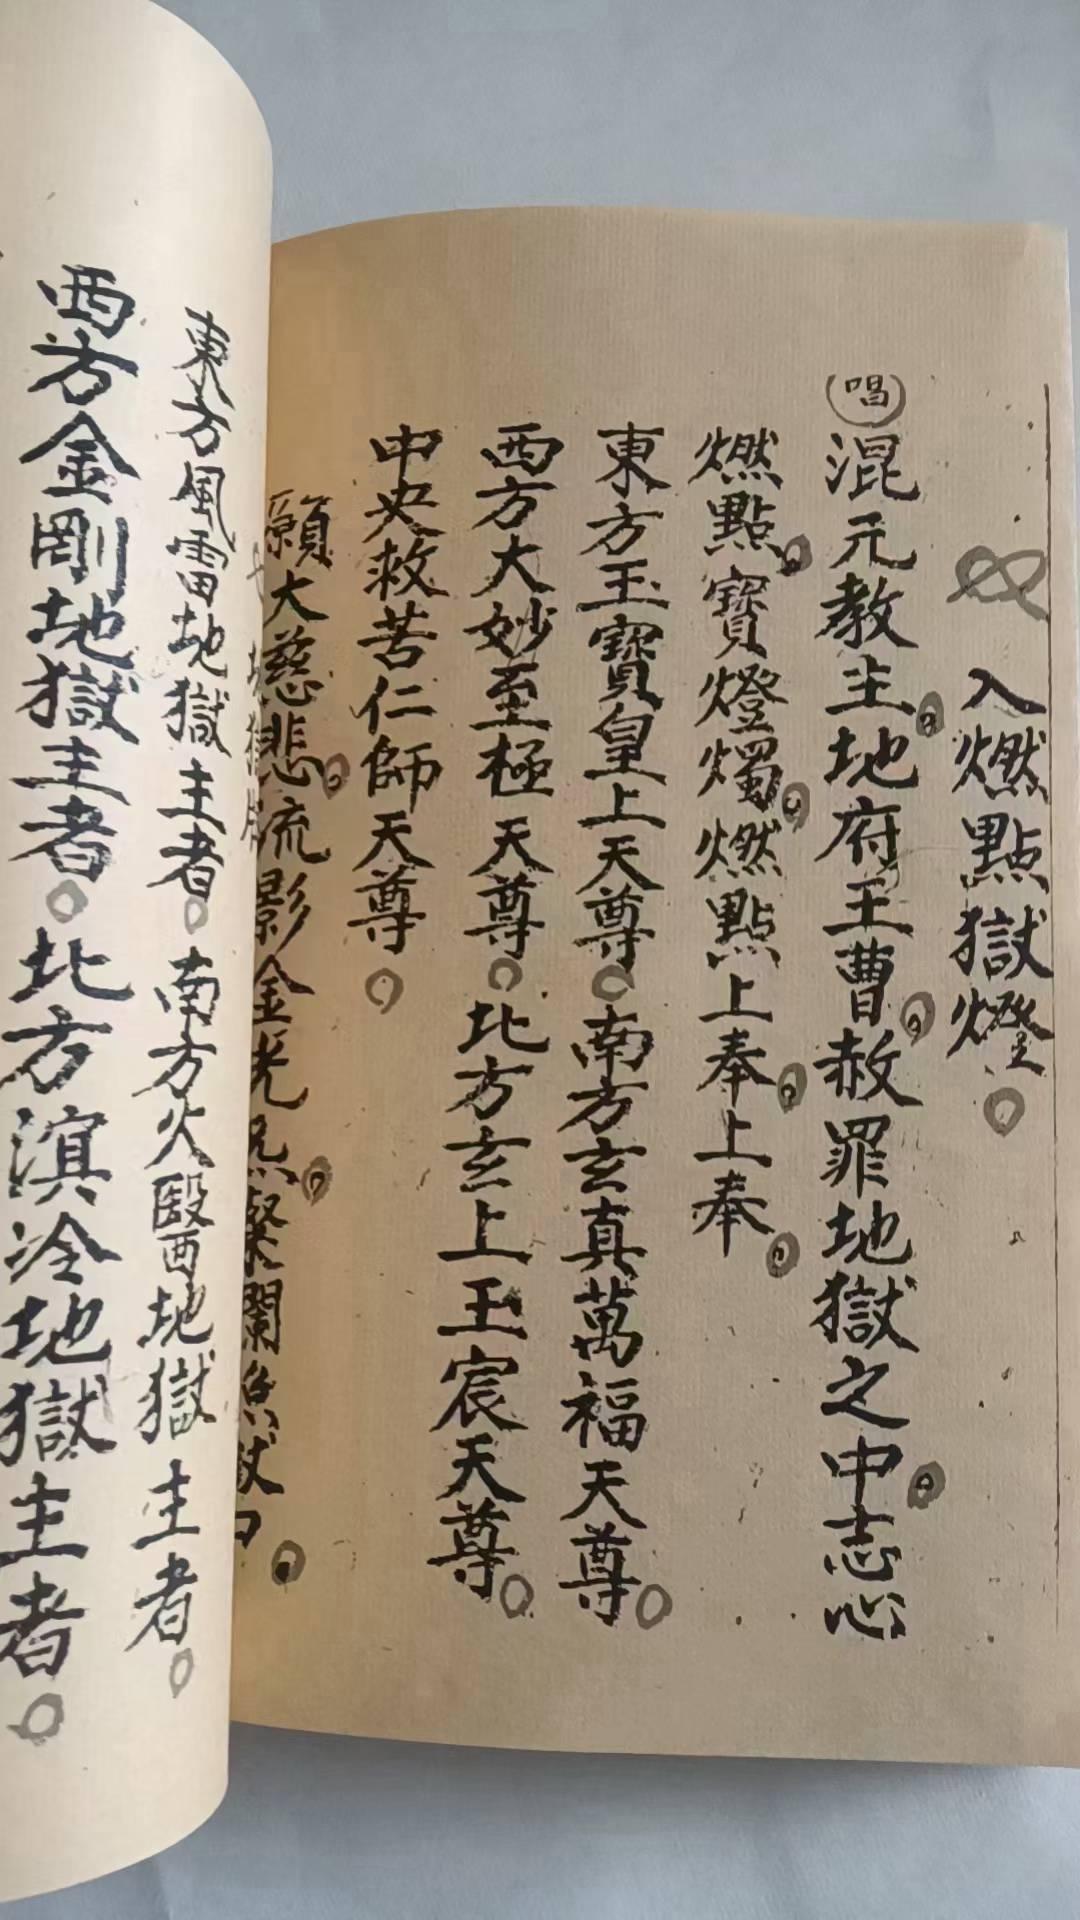 入燃點獄燈。
(唱)混元教主地府王曹赦罪地獄之中志心
燃點寶燈燭燃點上奉上奉
東方玉寶皇上天尊。南方玄真萬福天尊。
西方大妙至極天尊。北方玄上玉宸天尊。
中央救苦仁師天尊。
願大慈悲流影金光
東方風雷地獄主者。南方火醫地獄主者。
西方金剛地獄主者。北方溟冷地獄主者。